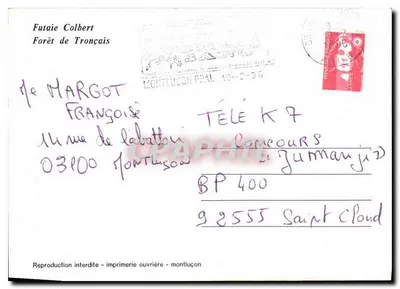 Futaie Colbert
Forêt de Tronçais
MONTLUCON PPAL 10-2-96
Me MARGOT
FRANÇOISE
14 rue de labattoir
03100 MONTLUÇON
TÉLÉ K7
CONCOURS
"Jumanji"
BP 400
92555 Saint Cloud
CPAPHIL
Reproduction interdite - imprimerie ouvrière - montluçon